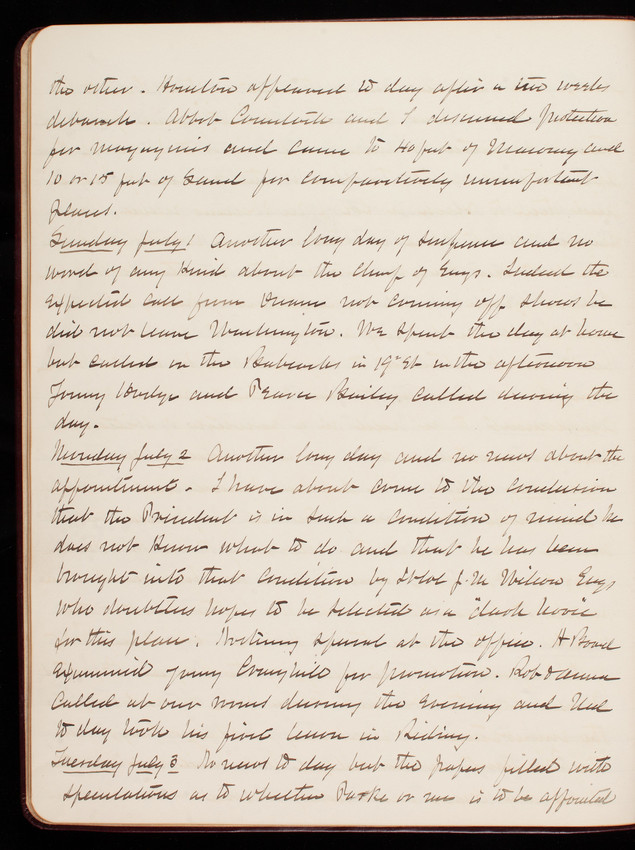 the other. Houston appeared to day after a two weeks
debauch. Abbot Comstock and I discussed protection
for magazines and came to 4 feet of Masonry and
10 or 15 feet of Sand for comparatively unimportant
places.
Sunday July 1 Another long day of suspense and no
word of any kind about the Chief of Engs. Indeed the
expected call from Duane not coming off shows he
did not leave Washington. We spent the day at home
but called on the Babcocks in 19" St in the afternoon
Jenny Hodge and Bailey called during the
day.
Monday July 2 Another long day and no news about the
appointment. I have about come to the conclusion
that the President is in such a condition of mind he
does not know what to do and that he has been
brought into that condition by Col J. M. Wilson Engs
who doubtless hopes to be selected as a "dark horse"
for this place. Nothing special at the office. A Board
examined young Craighill for promotion. Rob & Anna
called at our rooms during the evening and Ned
to day took his first lesson in Riding.
Tuesday July 3 No news to day but the papers filled with
speculations as to whether Parke or me is to be appointed